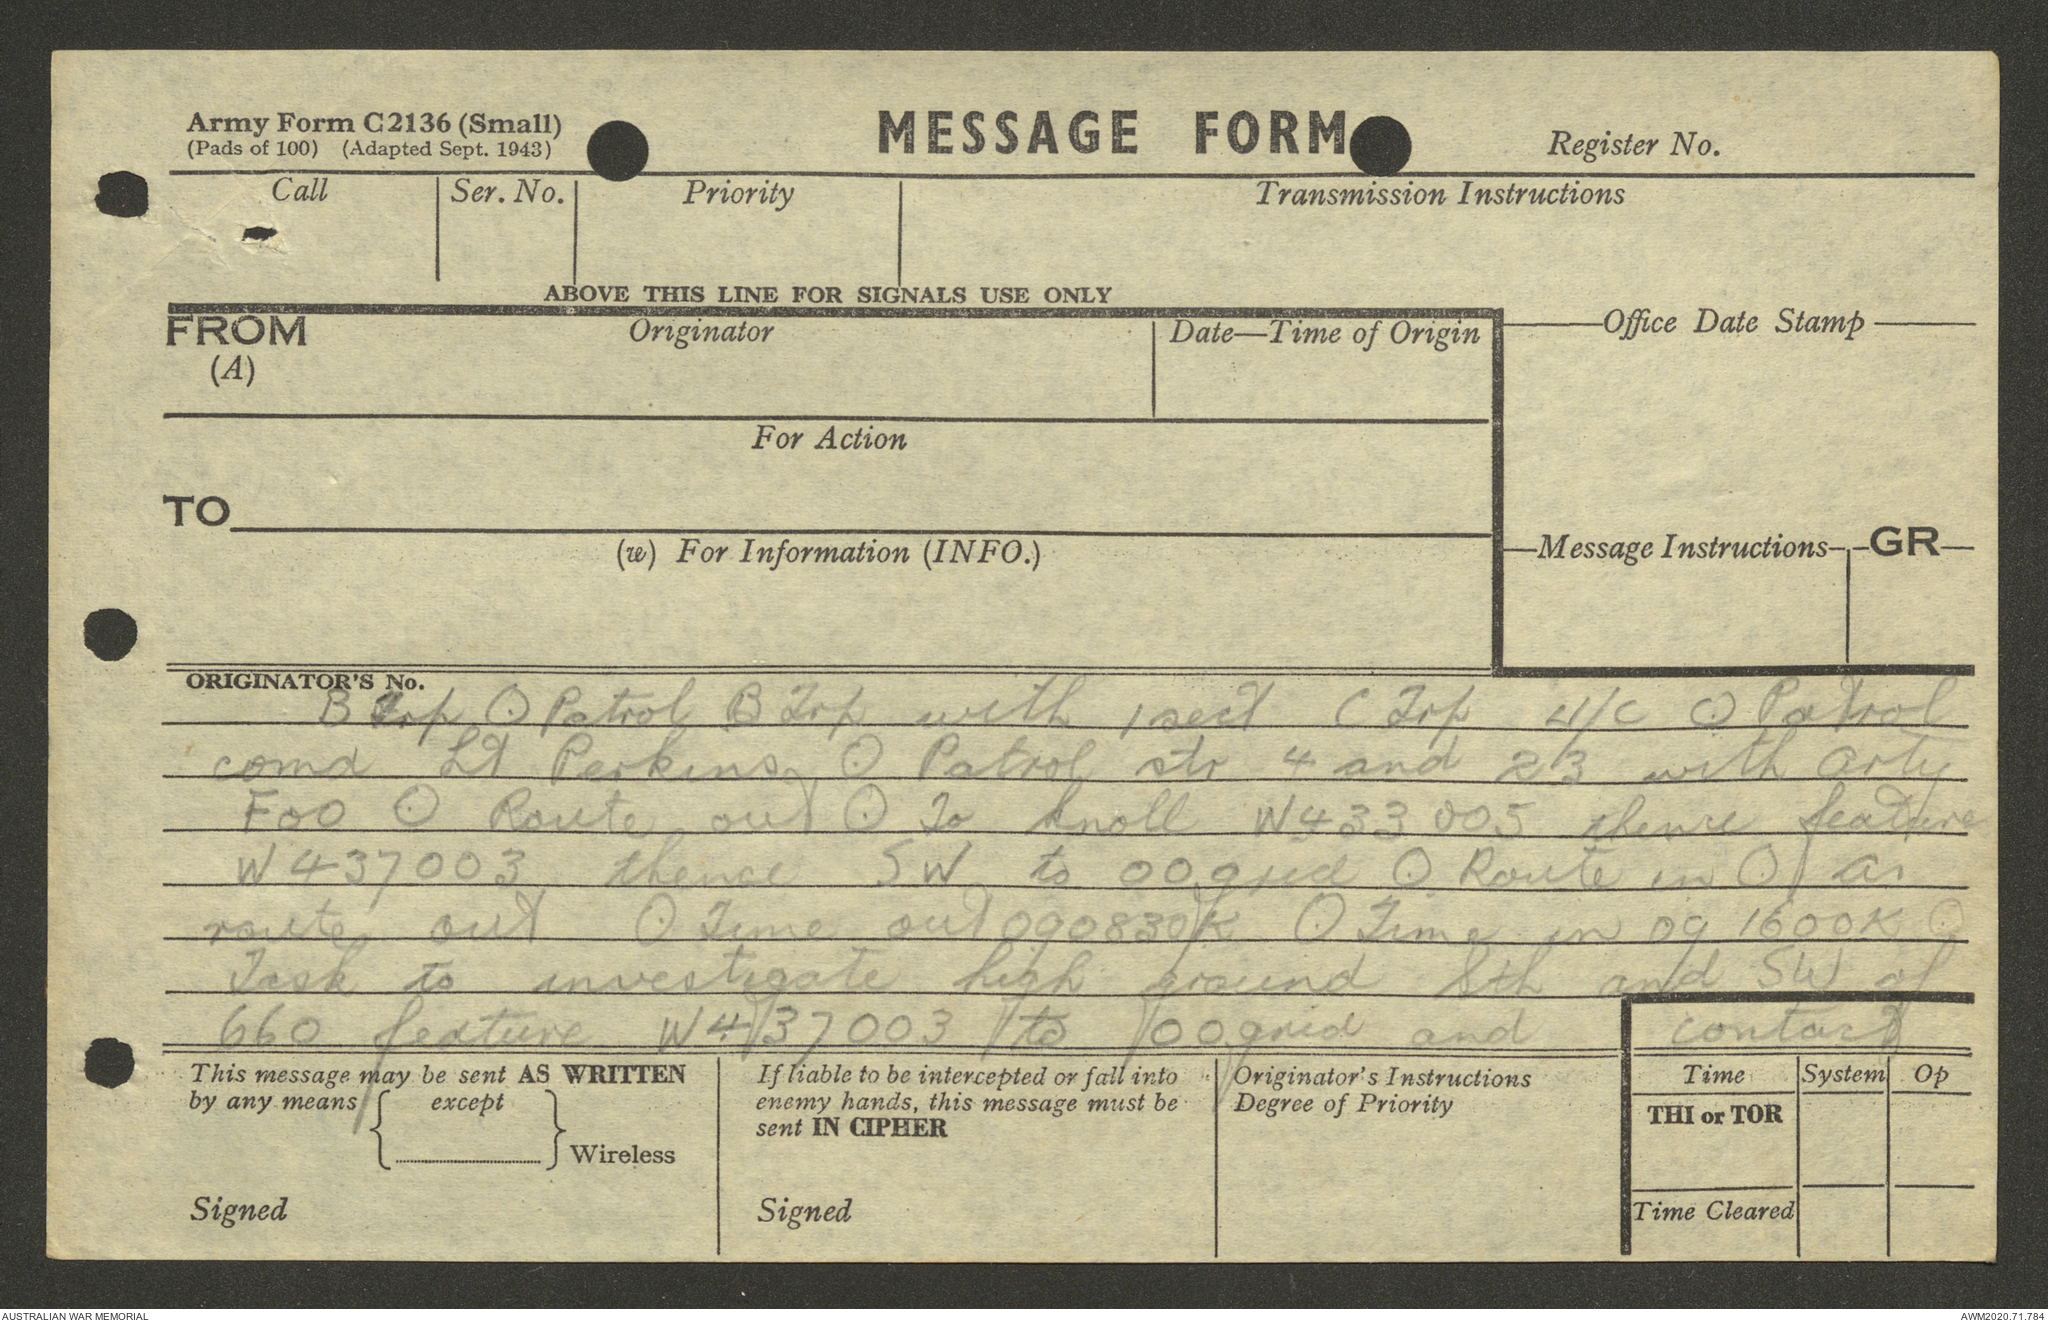 Army Form C2136 (Small)
(Pads of 100) (Adapted Sept. 1943)
MESSAGE FORM
Register No.
Call
Ser. No.
Priority
Transmission Instructions
ABOVE THIS LINE FOR SIGNALS USE ONLY
FROM
(A)
Originator
Date—Time of Origin
Office Date Stamp
For Action
TO
(w) For Information (INFO.)
Message Instructions
GR
ORIGINATOR'S No.
B Trp O Patrol B Trp with 1 sect C Trp U/C O Patrol
comd Lt Perkins O Patrol str 4 and 23 with arty
FOO O Route out O To knoll W433005 thence feature
W437003 thence SW to 00 grid O Route in O as
route out O Time out 090830K O Time in 091600K O
Task to investigate high ground Sth and SW of
660 feature W437003 to 00 grid and contact
This message may be sent AS WRITTEN
by any means except
Wireless
Signed
If liable to be intercepted or fall into
enemy hands, this message must be
sent IN CIPHER
Signed
Originator's Instructions
Degree of Priority
Time
System
Op
THI or TOR
Time Cleared
AUSTRALIAN WAR MEMORIAL
AWM2020.71.784